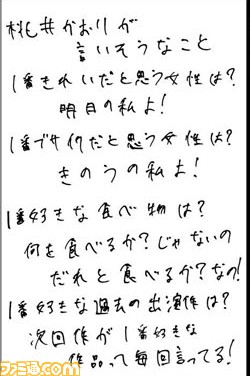 桃井かおりが
言いそうなこと
1番きれいだと思う女性は?
明日の私よ!
1番ブサイクだと思う女性は?
きのうの私よ!
1番好きな食べ物は?
何を食べるか?じゃないの
だれと食べるか?なの!
1番好きな過去の出演作は?
次回作が1番好きな
作品って毎回言ってる!
ファミ通.com